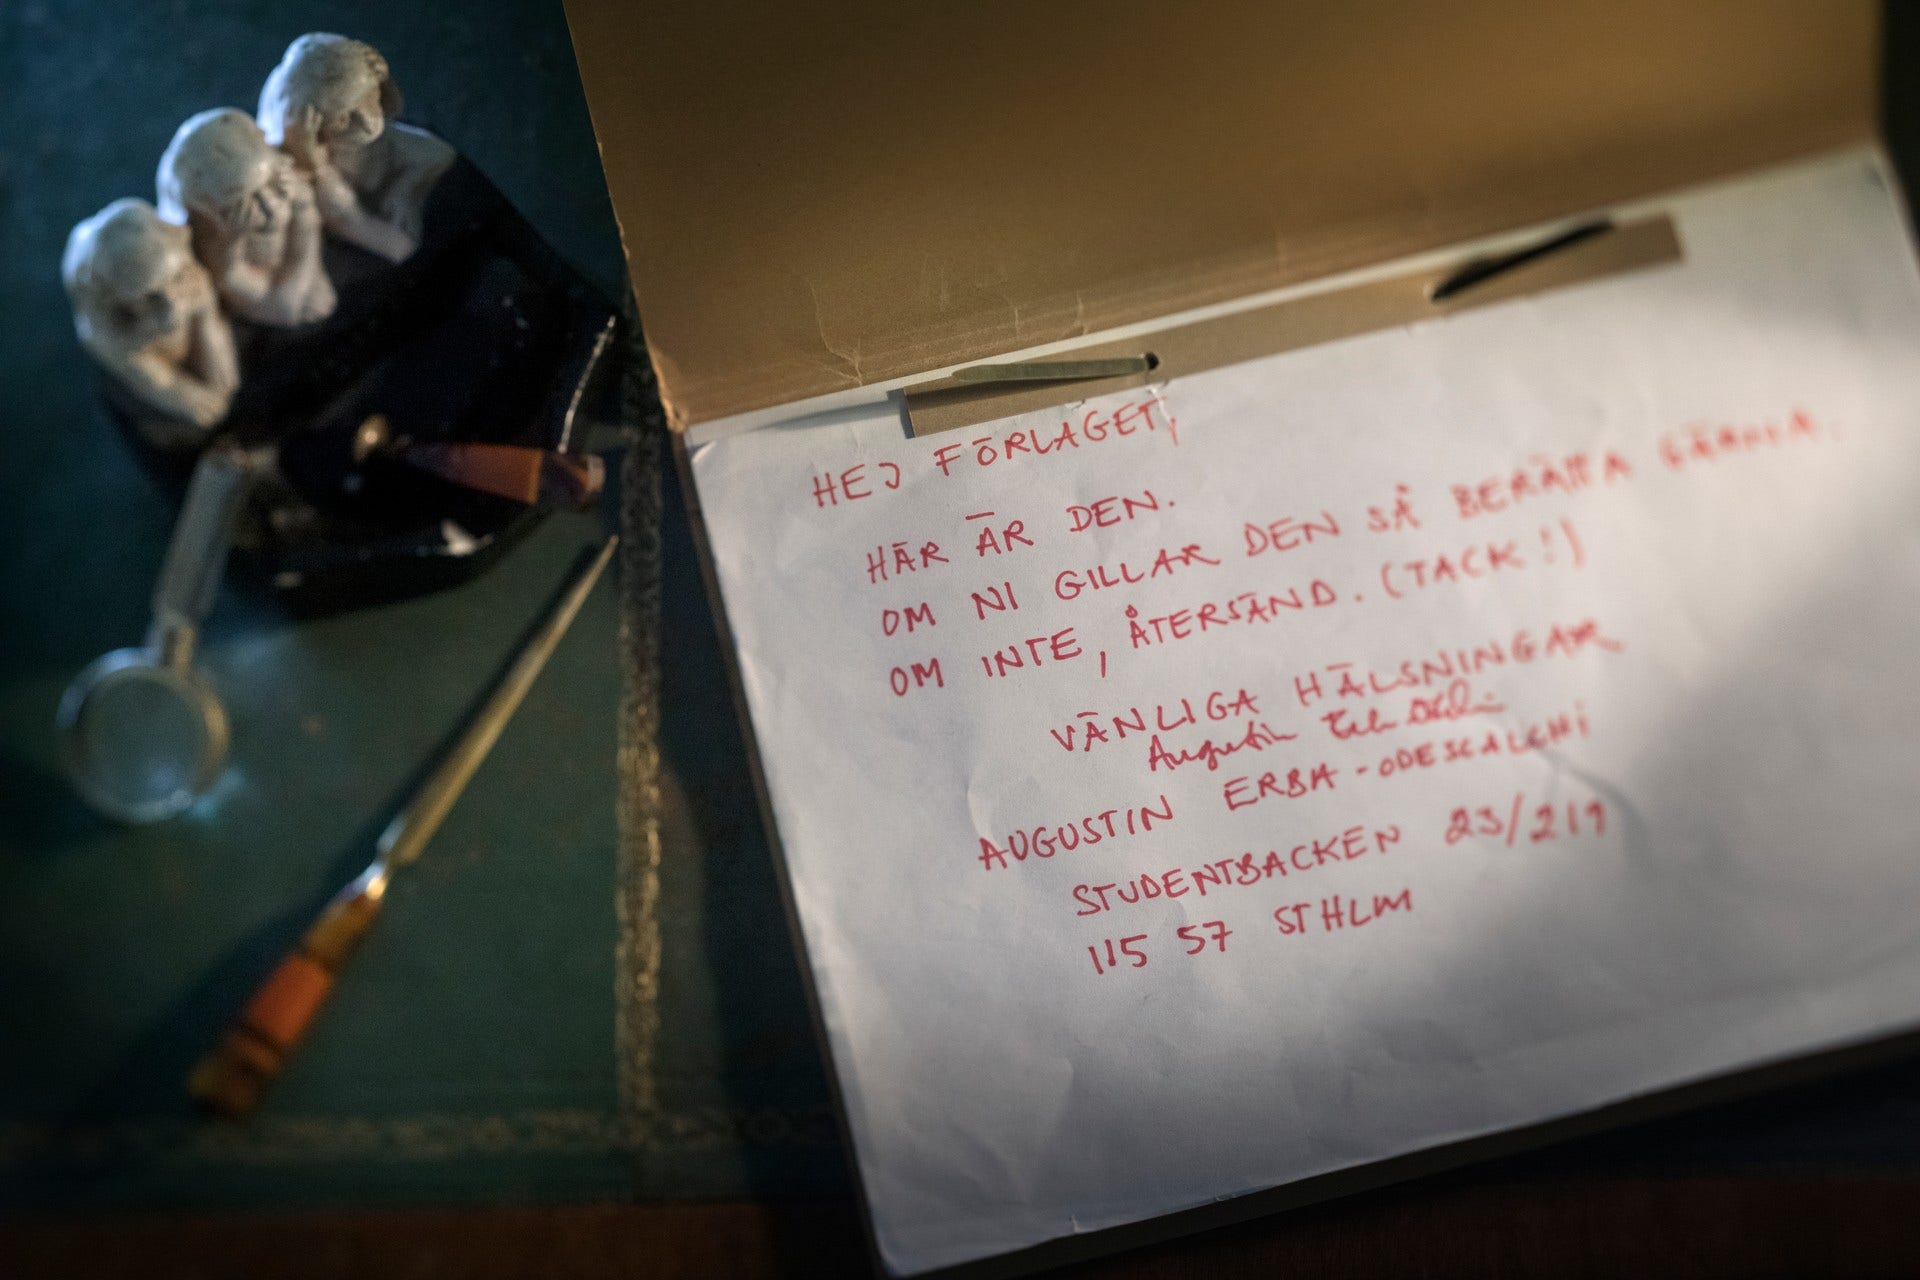 HEJ FÖRLAGET,
HÄR ÄR DEN.
OM NI GILLAR DEN SÅ BERÄTTA GÄRNA.
OM INTE, ÅTERSÄND. (TACK!)
VÄNLIGA HÄLSNINGAR
Augustin
AUGUSTIN ERBA-ODESCALCHI
STUDENTBACKEN 23/219
115 57 STHLM